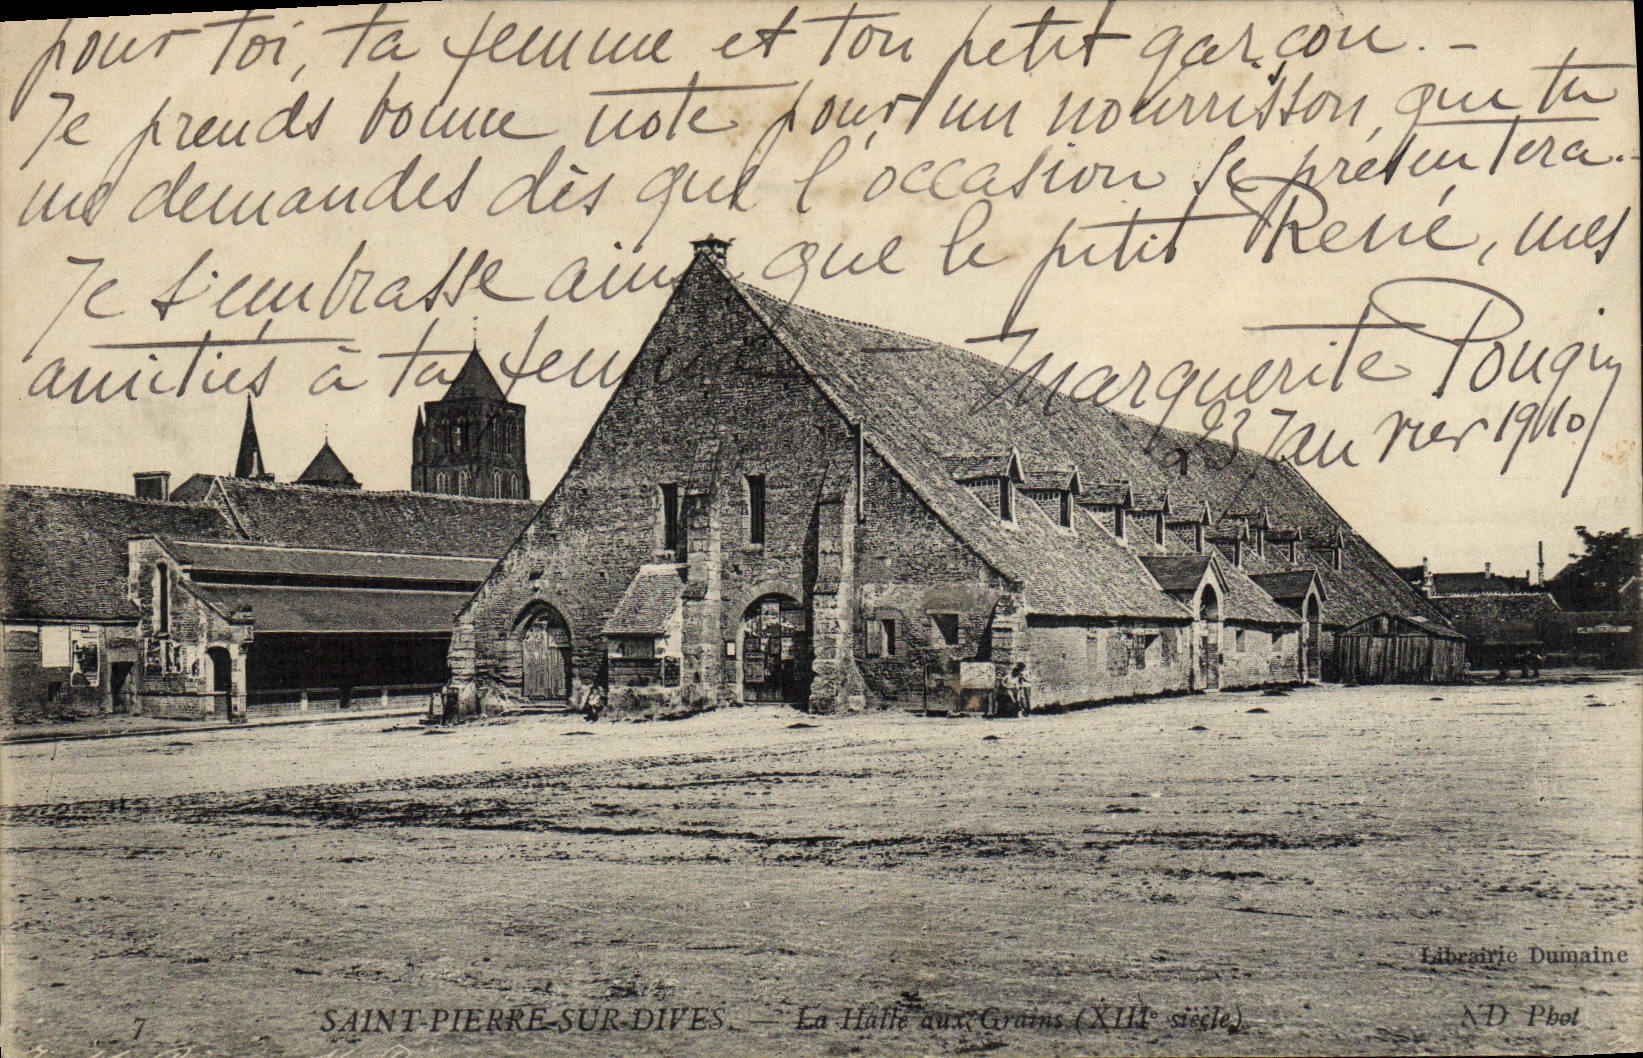 pour toi, ta femme et ton petit garçon. –
Je prends bonne note pour un nourrisson, que tu
me demandes dès que l'occasion se présentera. –
Je t'embrasse ainsi que le petit René, mes
amitiés à ta femme
Marguerite Pougin
23 Janvier 1910
Librairie Dumaine
7 SAINT-PIERRE-SUR-DIVES. — La Halle aux Grains (XIIIe siècle) ND Phot